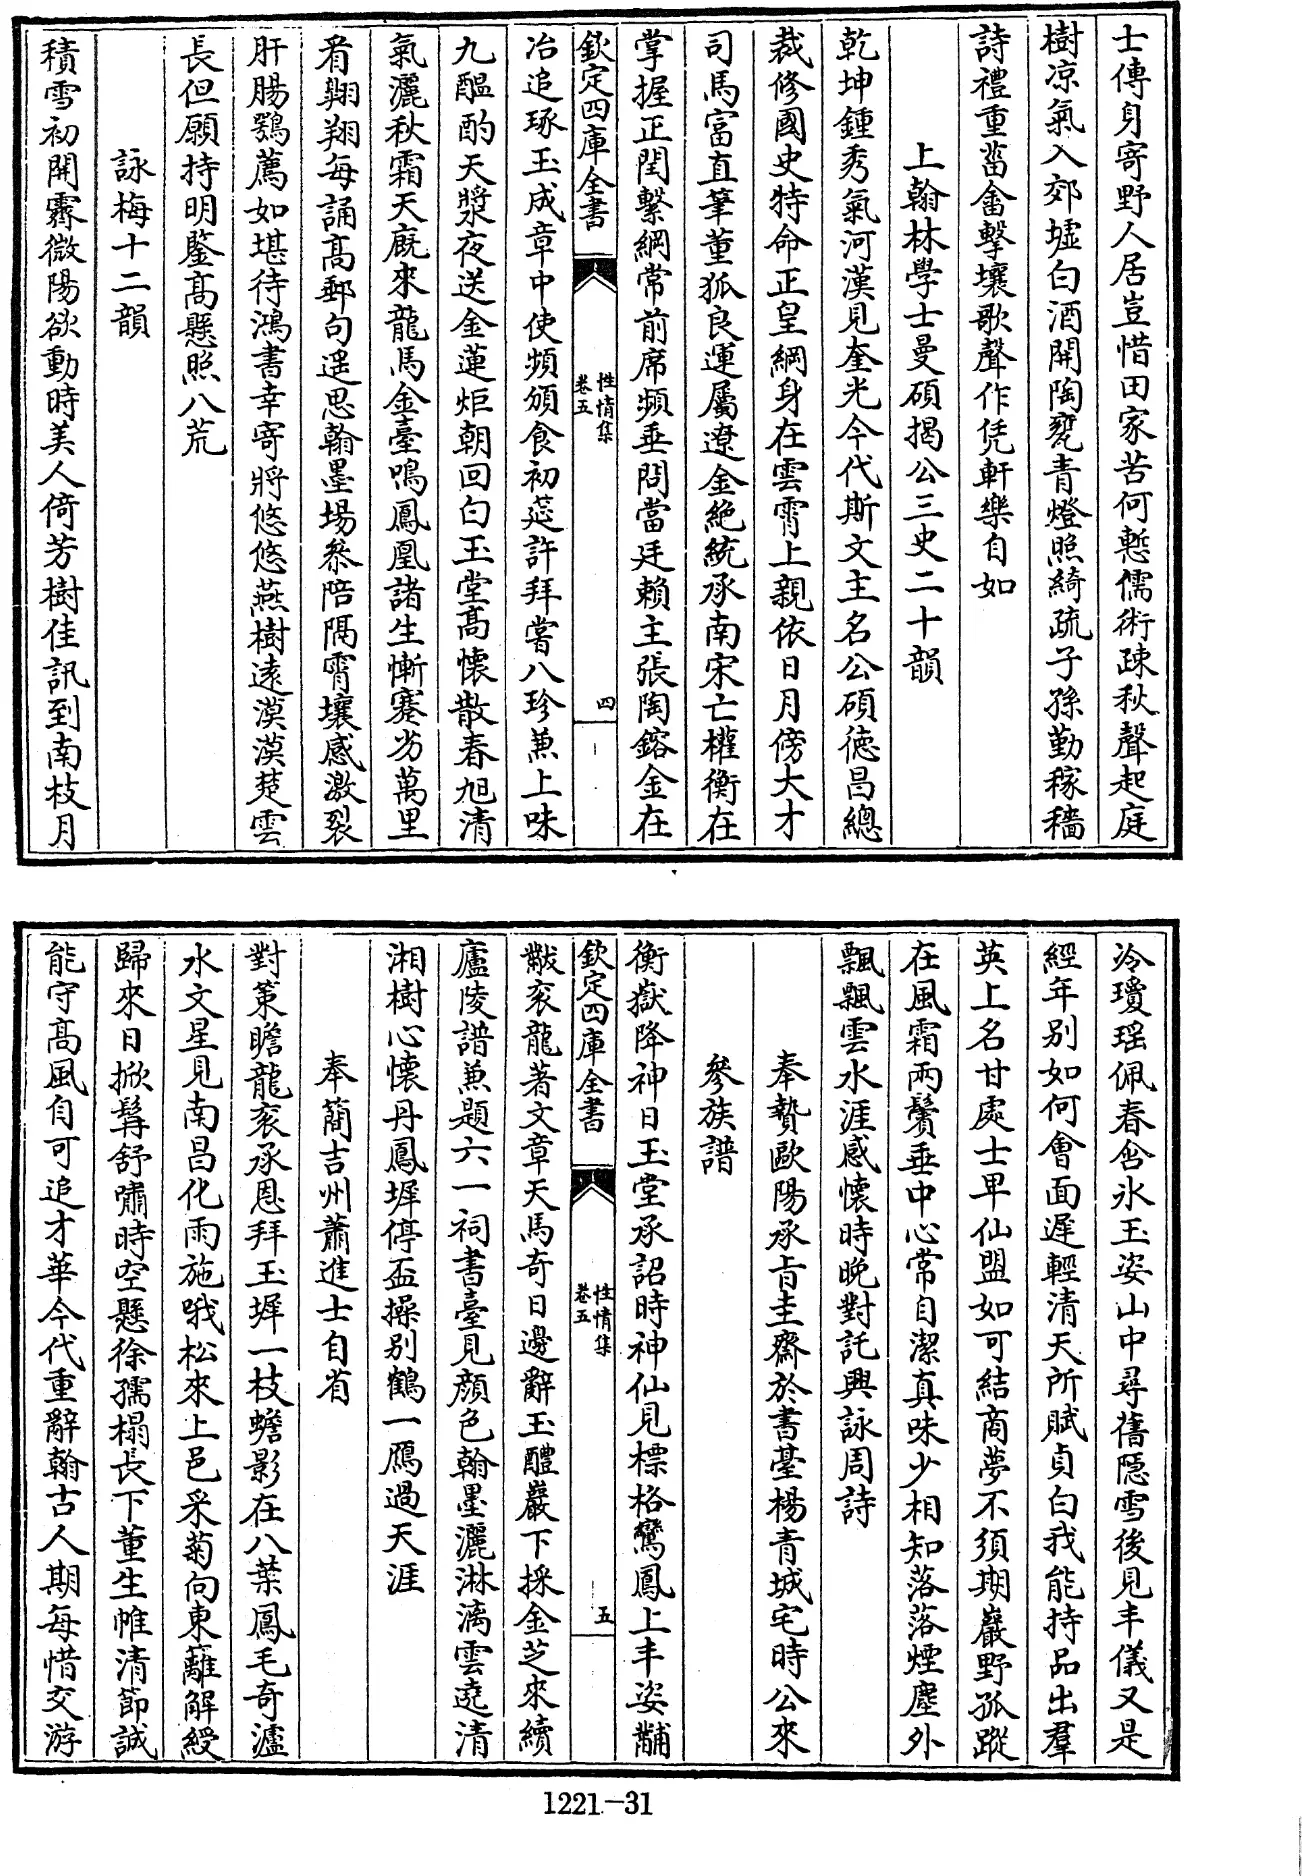 士傳身寄野人居豈惜田家苦何慙儒術疎秋聲起庭
樹凉氣入郊墟白酒開陶甕青燈照綺疏子孫勤稼穡
詩禮重菑畬擊壤歌聲作凭軒樂自如
上翰林學士曼碩揭公三史二十韻
乾坤鍾秀氣河漢見奎光今代斯文主名公碩徳昌總
裁修國史特命正皇綱身在雲霄上親依日月傍大才
司馬富直筆董狐良運屬遼金絶統承南宋亡權衡在
掌握正閏繫綱常前席頻垂問當廷賴主張陶鎔金在
冶追琢玉成章中使頻頒食初筵許拜嘗八珍兼上味
九醞酌天漿夜送金蓮炬朝回白玉堂髙懐散春旭清
氣灑秋霜天厩來龍馬金臺鳴鳳凰諸生慚蹇劣萬里
看翺翔每誦髙郵句遥思翰墨場叅陪隔霄壤感激裂
肝腸鶚薦如堪待鴻書幸寄將悠悠燕樹逺漠漠楚雲
長但願持明鑒髙懸照八荒
詠梅十二韻
積雪初開霽微陽欲動時美人倚芳樹佳訊到南枝月
欽定四庫全書
性情集
卷五
四
冷瓊瑶佩春含氷玉姿山中尋舊隠雪後見丰儀又是
經年别如何會面遲輕清天所賦貞白我能持品出羣
英上名甘處士卑仙盟如可結商夢不須期巖野孤蹤
在風霜兩鬢垂中心常自潔真味少相知落落煙塵外
飄飄雲水涯感懐時晩對託興詠周詩
奉贄歐陽承㫖圭齋於書臺楊青城宅時公來
參族譜
衡嶽降神日玉堂承詔時神仙見標格鸞鳳上丰姿黼
黻衮龍著文章天馬奇日邊辭玉醴巖下採金芝來續
廬陵譜兼題六一祠書臺見顔色翰墨灑淋漓雲遶清
湘樹心懐丹鳳墀停盃操别鶴一鴈過天涯
奉簡吉州蕭進士自省
對策瞻龍衮承恩拜玉墀一枝蟾影在八葉鳳毛奇瀘
水文星見南昌化雨施哦松來上邑采菊向東籬解綬
歸來日掀髯舒嘯時空懸徐孺榻長下董生帷清節誠
能守髙風自可追才華今代重辭翰古人期每惜交游
欽定四庫全書
性情集
卷五
五
1221-31